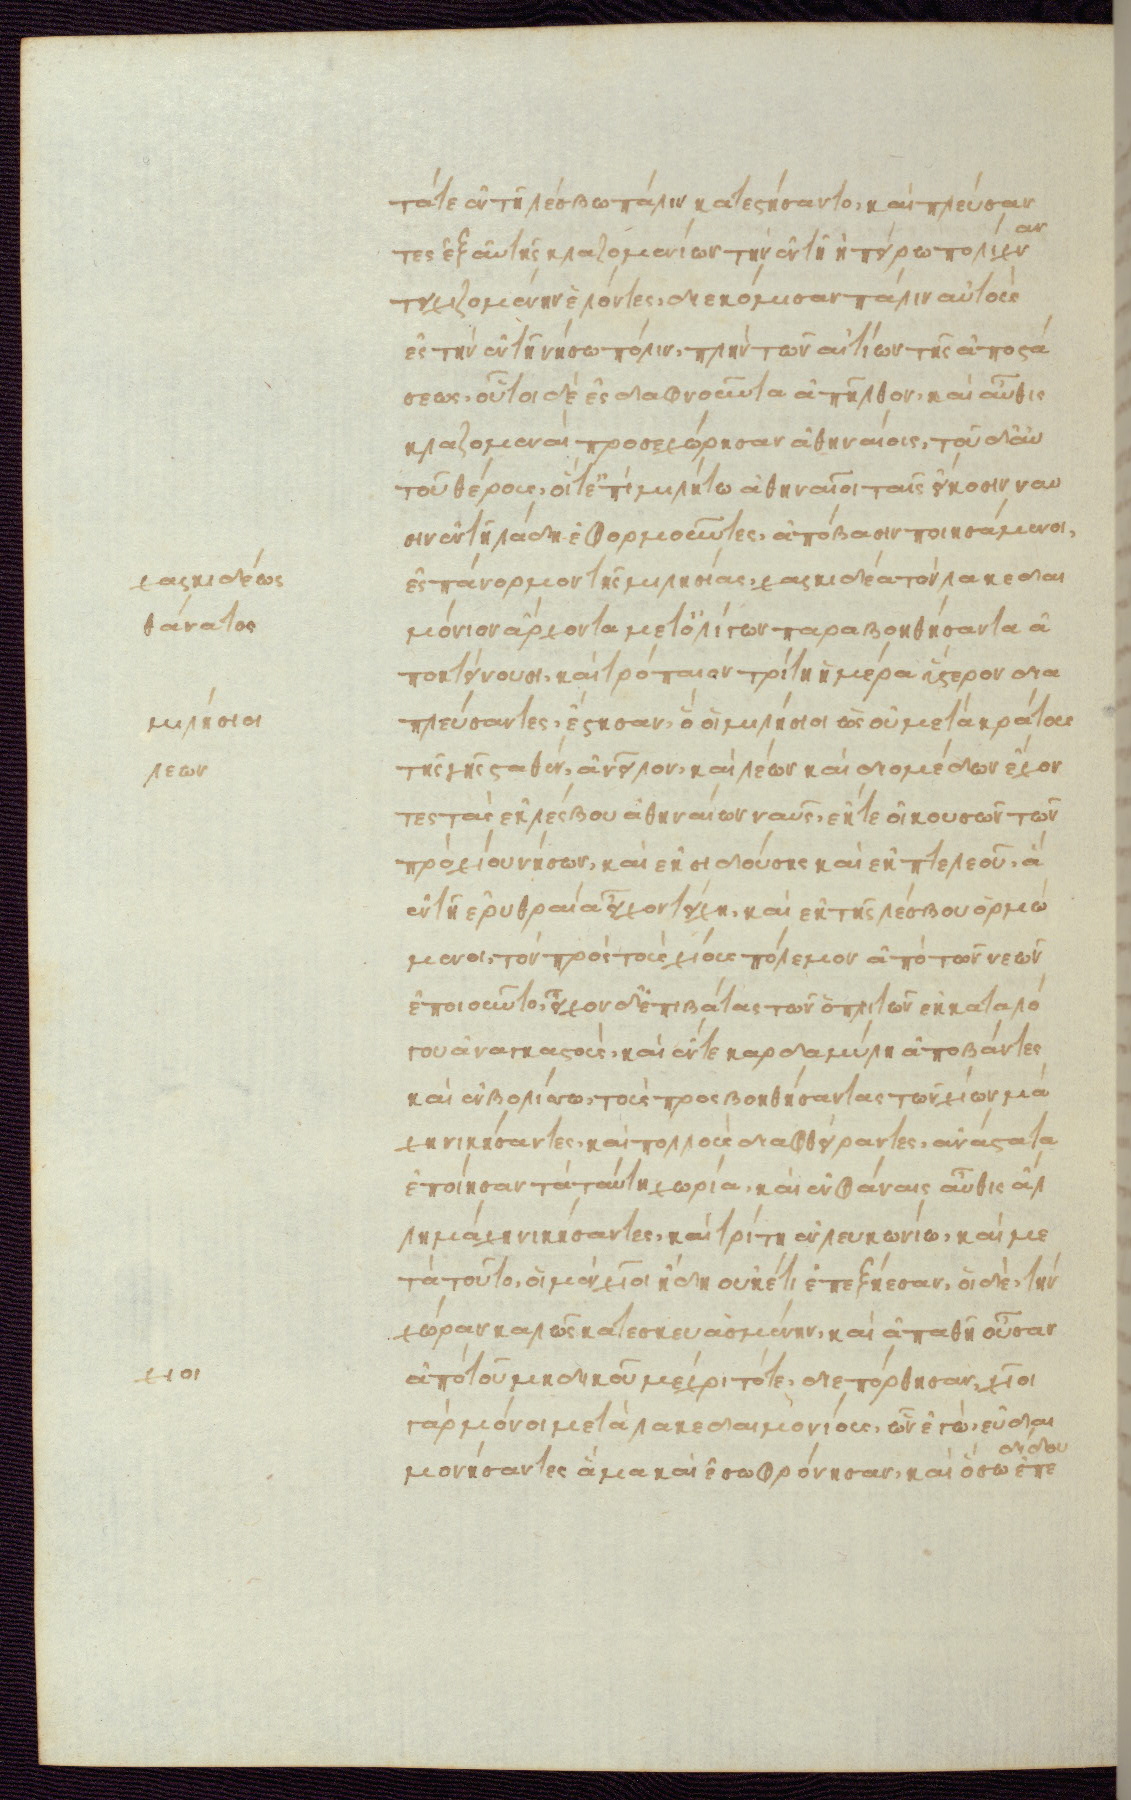 τά τε ἐν τῆ λέσβω πάλιν κατεστήσαντο, καὶ πλεύσαν
τες ἐξ αὐτῆς κλαζομενίων τὴν ἐν τῆ ἠπείρω πολίχναν
τειχιζομένην ἑλόντες, διεκόμισαν πάλιν αὐτοὺς
ἐς τὴν ἐν τῆ νήσω πόλιν, πλὴν τῶν αἰτίων τῆς ἀποστά
σεως, οὗτοι δὲ ἐς δαφνοῦντα ἀπῆλθον, καὶ αὖθις
κλαζομεναὶ προσεχώρησαν ἀθηναίοις, τοῦ δ' αὐ
τοῦ θέρους, οἵ τ' ἐπὶ μιλήτω ἀθηναῖοι ταῖς εἴκοσιν ναυ
σιν ἐν τῆ λάδη ἐφορμοῦντες, ἀπόβασιν ποιησάμενοι,
χαλκιδέως
ἐς πάνορμον τῆς μιλησίας, χαλκιδέα τὸν λακεδαι
θάνατος
μόνιον ἄρχοντα μετ' ὀλίγων παραβοηθήσαντα ἀ
ποκτείνουσι, καὶ τρόπαιον τρίτη ἡμέρα ὕστερον δια
μιλήσιοι
πλεύσαντες, ἔστησαν, ὃ οἱ μιλήσιοι ὡς οὐ μετὰ κράτους
λεων
τῆς γῆς σταθὲν, ἀνεῖλον, καὶ λέων καὶ διομέδων ἔχον
τες τὰς ἐκ λέσβου ἀθηναίων ναῦς, ἔκ τε οἰνουσῶν τῶν
πρὸ χίου νήσων, καὶ ἐκ σιδούσης καὶ ἐκ πτελεοῦ, ἃ
ἐν τῆ ἐρυθραία εἶχον τείχη, καὶ ἐκ τῆς λέσβου ὁρμώ
μενοι, τὸν πρὸς τοὺς χίους πόλεμον ἀπὸ τῶν νεῶν
ἐποιοῦντο, εἶχον δ' ἐπιβάτας τῶν ὁπλιτῶν ἐκ καταλό
γου ἀναγκαστοὺς, καὶ ἔν τε καρδαμύλη ἀποβάντες
καὶ ἐν βολίσσω, τοὺς προσβοηθήσαντας τῶν χίων μά
χη νικήσαντες, καὶ πολλοὺς διαφθείραντες, ἀνάστατα
ἐποίησαν τὰ ταύτη χωρία, καὶ ἐν φάναις αὖθις ἄλ
λη μάχη νικήσαντες, καὶ τρίτη ἐν λευκωνίω, καὶ με
τὰ τοῦτο, οἱ μὲν χῖοι ἤδη οὐκέτι ἐπεξήεσαν, οἱ δὲ, τὴν
χώραν καλῶς κατεσκευασμένην, καὶ ἀπαθῆ οὖσαν
χιοι
ἀπὸ τοῦ μηδικοῦ μέχρι τότε, διεπόρθησαν, χῖοι
γὰρ μόνοι μετὰ λακεδαιμονίους, ὧν ἐγὼ, εὐδαι
μονήσαντες ἅμα καὶ ἐσωφρόνησαν, καὶ ὅσω ἐπεδίδου